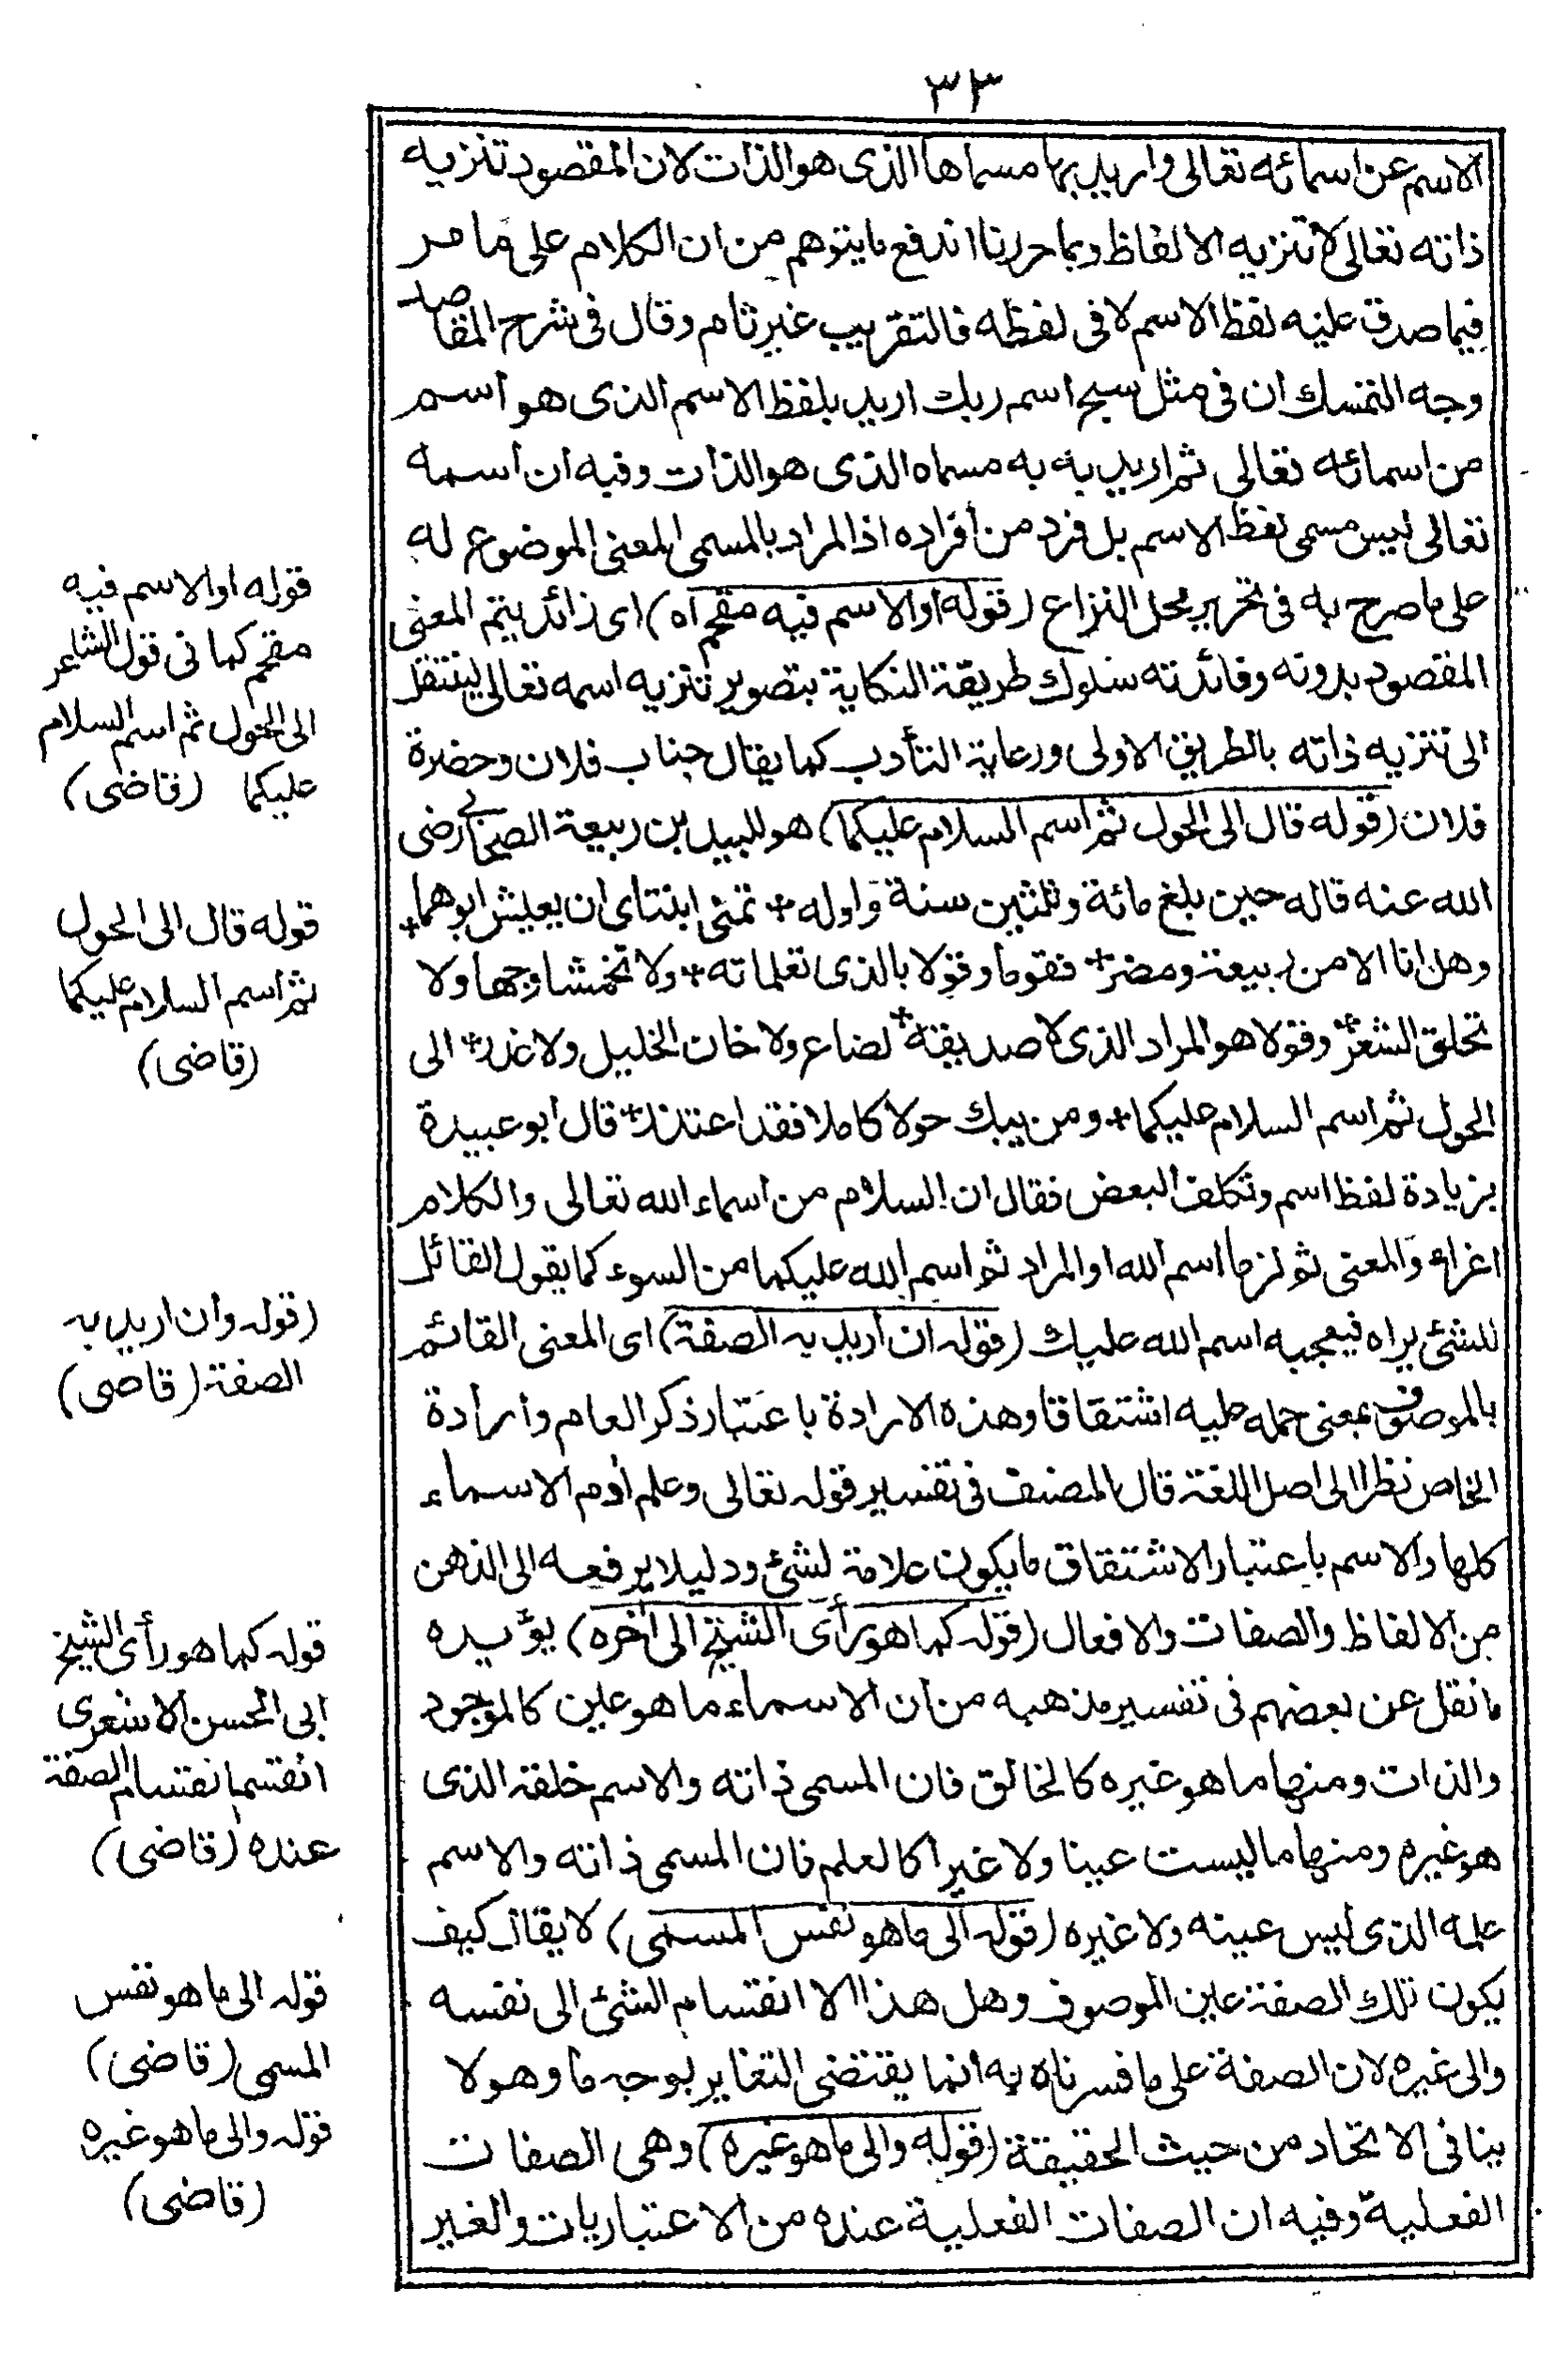 ٣٣
الاسم عن اسمائه تعالى واريد بها مسماها الذى هو الذات لان المقصود تنزيه
ذاته تعالى لا تنزيه الالفاظ وبما حررنا اندفع ما يتوهم من ان الكلام على ما مر
فيما صدق عليه لفظ الاسم لا فى لفظه فالتقريب غير تام وقال فى شرح المقاصد
وجه التمسك ان فى مثل سبح اسم ربك اريد بلفظ الاسم الذى هو اسم
من اسمائه تعالى ثم اريد به به مسماه الذى هو الذات وفيه ان اسمه
تعالى ليس مسمى لفظ الاسم بل فرد من أفراده اذ المراد بالمسمى المعنى الموضوع له
على ما صرح به فى تحرير محل النزاع (قوله اوالاسم فيه مقحم اه) اى زائد يتم المعنى
المقصود بدونه وفائدته سلوك طريقة الكناية بتصوير تنزيه اسمه تعالى لينتقل
الى تنزيه ذاته بالطريق الاولى ورعاية التأدب كما يقال جناب فلان وحضرة
فلان (قوله قال الى الحول ثم اسم السلام عليكما) هو للبيد بن ربيعة الصحابى رضى
الله عنه قاله حين بلغ مائة وثلثين سنة واوله + تمنى ابنتاى ان يعيش ابوهما +
وهل انا الا من ربيعة ومضر + فقوما وقولا بالذى تعلمانه + ولا تخمشا وجها ولا
تحلق الشعر + وقولا هو المراد الذى لا صديقه + لضاع ولا خان الخليل ولا غدر + الى
الحول ثم اسم السلام عليكما + ومن يبك حولا كاملا فقد اعتذر + قال ابو عبيدة
بزيادة لفظ اسم وتكلف البعض فقال ان السلام من اسماء الله تعالى والكلام
اغراء والمعنى ثم لزما اسم الله او المراد ثم اسم الله عليكما من السوء كما يقول القائل
للشئ يراه فيعجبه اسم الله عليك (قوله ان أريد به الصفة) اى المعنى القائم
بالموصوف بمعنى حمله عليه اشتقاقا وهذه الارادة باعتبار ذكر العام وارادة
الخاص نظرا الى اصل اللغة قال المصنف فى تفسير قوله تعالى وعلم أدم الاسماء
كلها والاسم باعتبار الاشتقاق ما يكون علامة لشئ ودليلا يرفعه الى الذهن
من الالفاظ والصفات والافعال (قوله كما هو رأى الشيخ الى أخره) يؤيده
ما نقل عن بعضهم فى تفسير مذهبه من ان الاسماء ما هو عين كالموجود
والذات ومنها ما هو غيره كالخالق فان المسمى ذاته والاسم خلقه الذى
هو غيره ومنها ما ليست عينا ولا غيرا كالعلم فان المسمى ذاته والاسم
علمه الذى ليس عينه ولا غيره (قوله الى ما هو نفس المسمى) لا يقال كيف
يكون تلك الصفة عين الموصوف وهل هذا الا انقسام الشئ الى نفسه
والى غيره لان الصفة على ما فسرناه به انما يقتضى التغاير بوجه ما وهو لا
ينافى الاتحاد من حيث الحقيقة (قوله والى ما هو غيره) وهى الصفات
الفعلية وفيه ان الصفات الفعلية عنده من الاعتباريات والغير
قوله اوالاسم فيه
مقحم كما فى قول الشاعر
الى الحول ثم اسم السلام
عليكما (قاضى)
قوله قال الى الحول
ثم اسم السلام عليكما
(قاضى)
(قوله وان اريد به
الصفة (قاضى)
قوله كما هو رأى الشيخ
ابى الحسن الاشعرى
انقسم انقسام الصفة
عنده (قاضى)
قوله الى ما هو نفس
المسمى (قاضى)
قوله والى ما هو غيره
(قاضى)